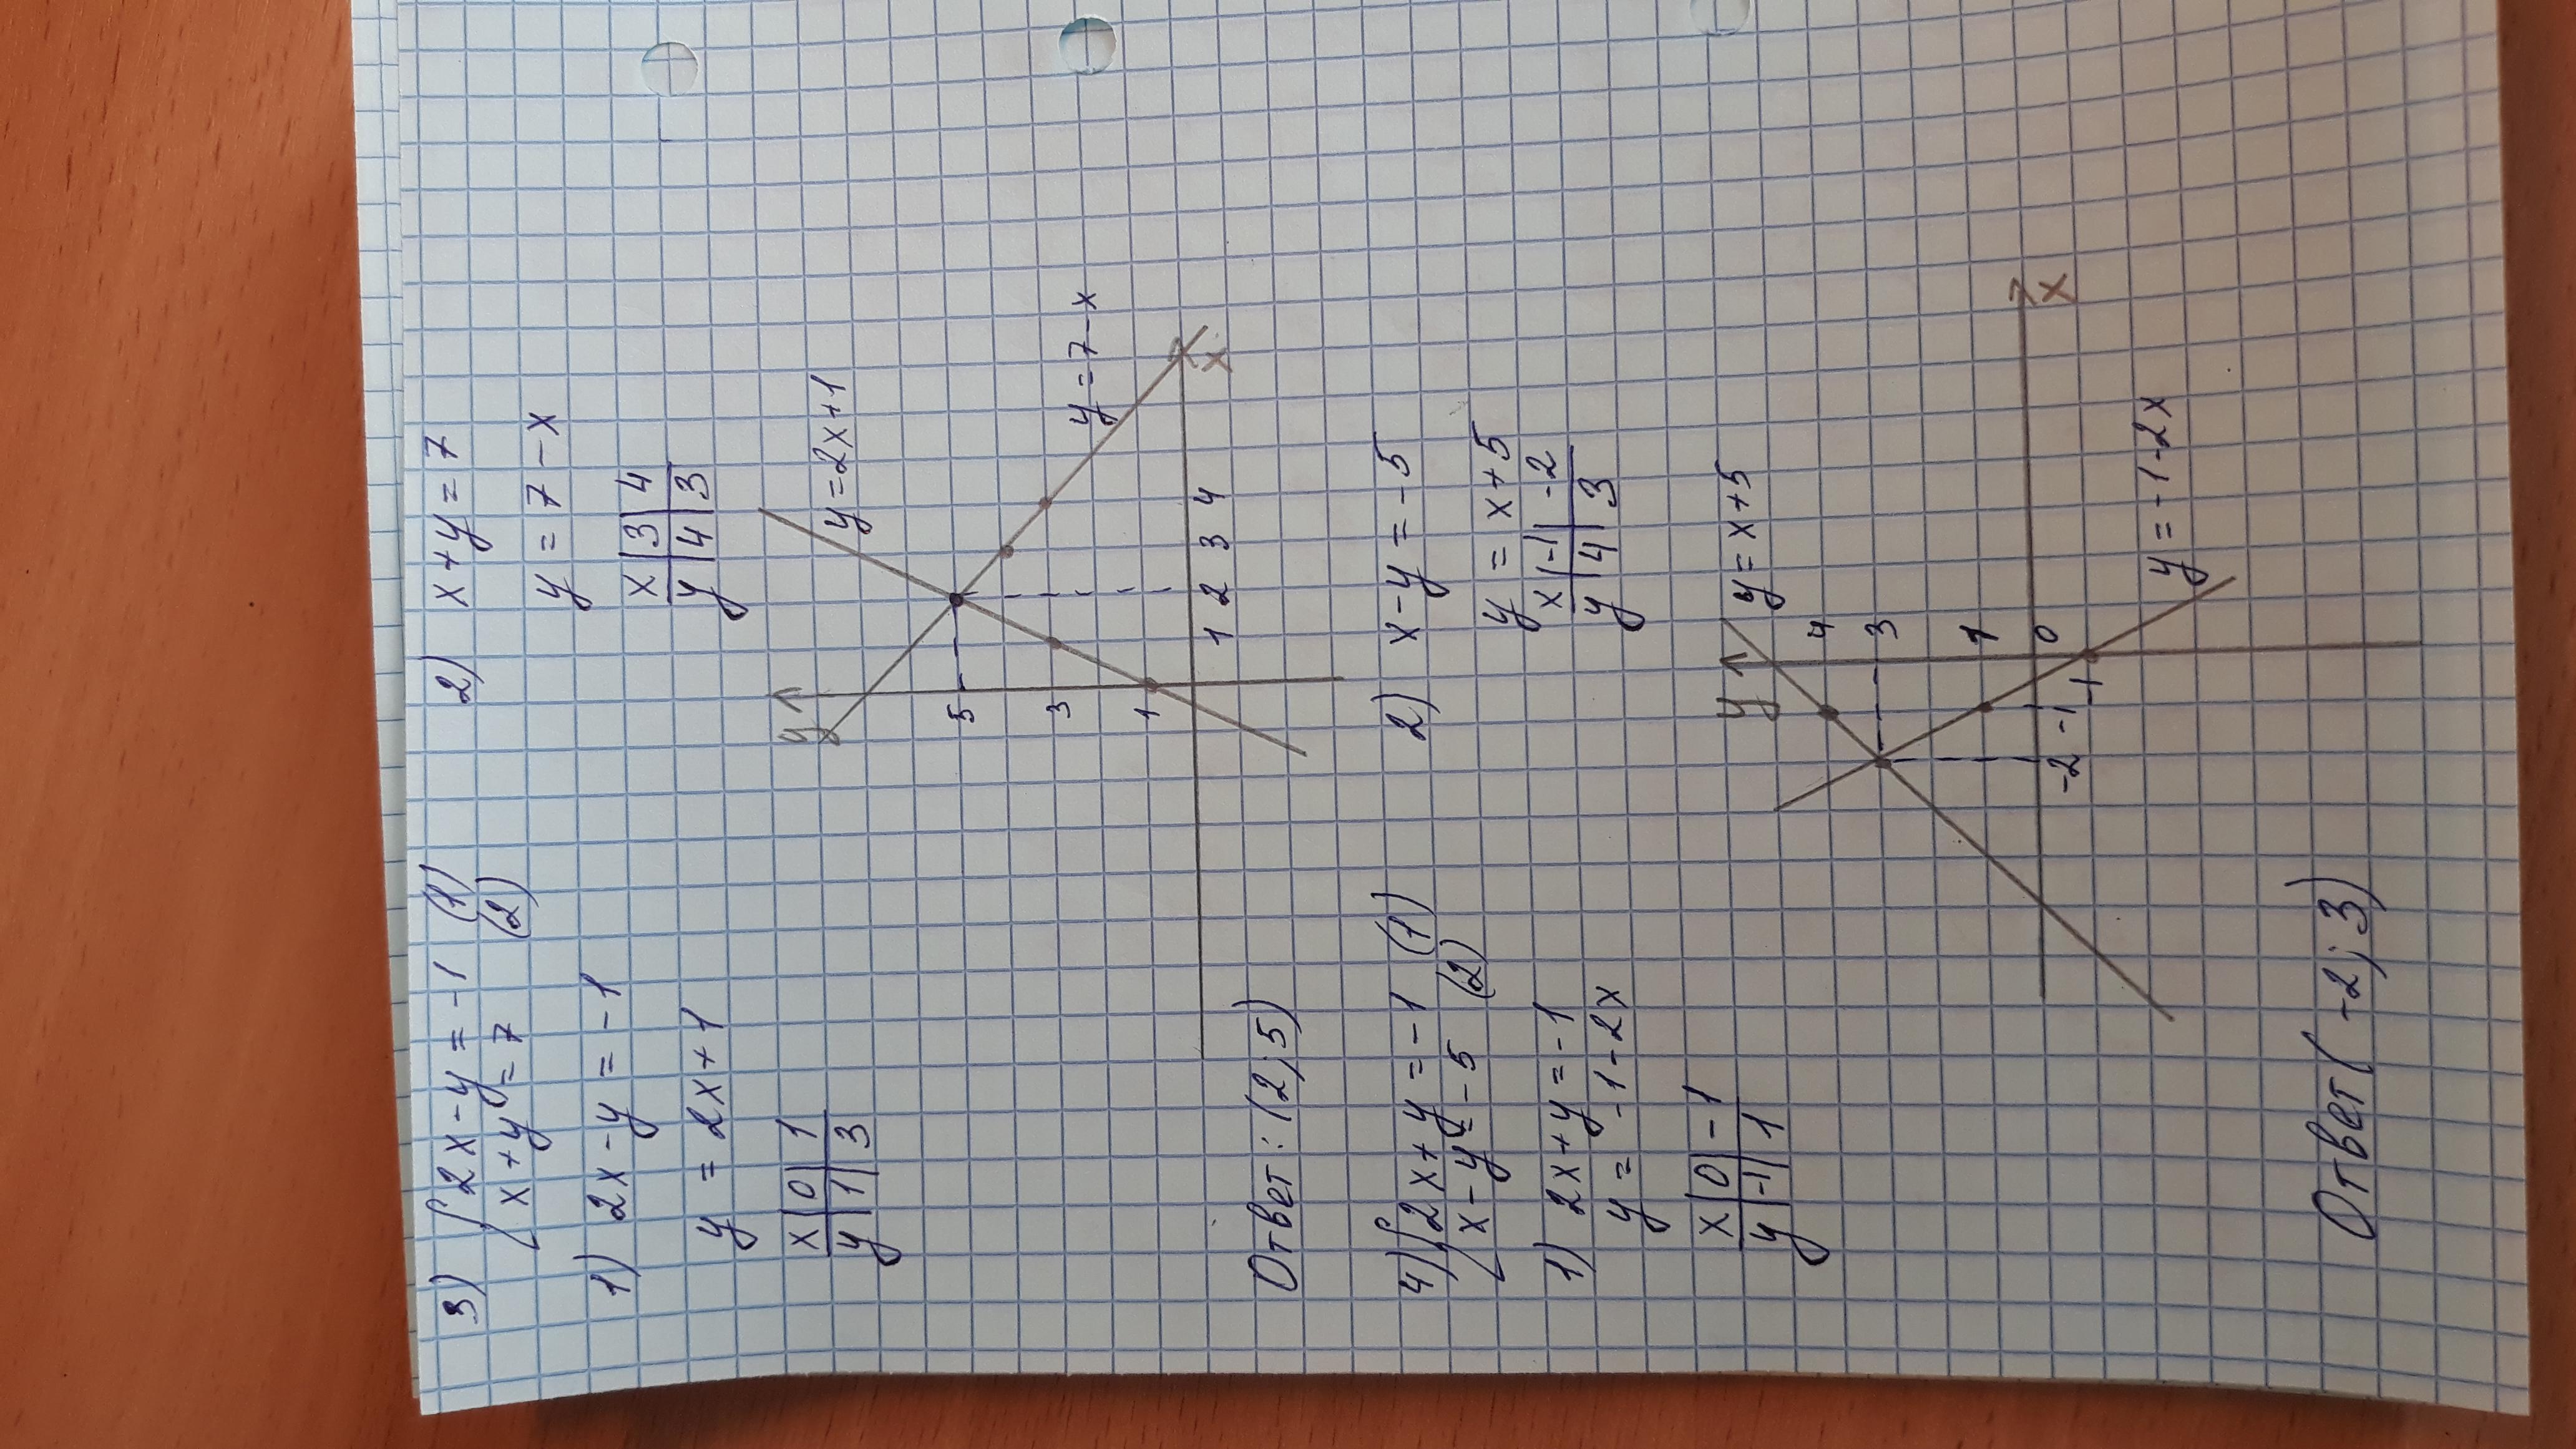 3) { 2x - y = -1 (1)
x + y = 7 (2)
1) 2x - y = -1
y = 2x + 1
x | 0 | 1
y | 1 | 3
2) x + y = 7
y = 7 - x
x | 3 | 4
y | 4 | 3
y
y = 2x + 1
5
3
1
y = 7 - x
x
1 2 3 4
Ответ: (2; 5)
4) { 2x + y = -1 (1)
x - y = -5 (2)
1) 2x + y = -1
y = -1 - 2x
x | 0 | -1
y | -1 | 1
2) x - y = -5
y = x + 5
x | -1 | -2
y | 4 | 3
y
y = x + 5
4
3
1
0
x
-2 -1
-1
y = -1 - 2x
Ответ (-2; 3)